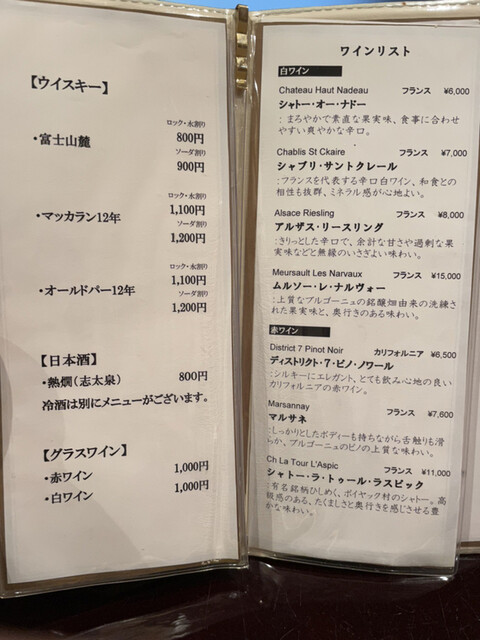 【ウイスキー】
ロック・水割り
・富士山麓 800円
ソーダ割り
900円
ロック・水割り
・マッカラン12年 1,100円
ソーダ割り
1,200円
ロック・水割り
・オールドパー12年 1,100円
ソーダ割り
1,200円
【日本酒】
・熱燗(志太泉) 800円
冷酒は別にメニューがございます。
【グラスワイン】
・赤ワイン 1,000円
・白ワイン 1,000円
ワインリスト
白ワイン
Chateau Haut Nadeau フランス ¥6,000
シャトー・オー・ナドー
: まろやかで素直な果実味、食事に合わせ
やすい爽やかな辛口。
Chablis St Ckaire フランス ¥7,000
シャブリ・サントクレール
: フランスを代表する辛口白ワイン、和食との
相性も抜群、ミネラル感が心地よい。
Alsace Riesling フランス ¥8,000
アルザス・リースリング
: きりっとした辛口で、余計な甘さや過剰な果
実味などと無縁のいさぎよい味わい。
Meursault Les Narvaux フランス ¥15,000
ムルソー・レ・ナルヴォー
: 上質なブルゴーニュの銘醸畑由来の洗練さ
れた果実味と、奥行きのある味わい。
赤ワイン
District 7 Pinot Noir カリフォルニア ¥6,500
ディストリクト・7・ピノ・ノワール
: シルキーにエレガント、とても飲み心地の良い
カリフォルニアの赤ワイン。
Marsannay フランス ¥7,600
マルサネ
: しっかりとしたボディーも持ちながら舌触りも滑
らか、ブルゴーニュのピノの上質な味わい。
Ch La Tour L'Aspic フランス ¥11,000
シャトー・ラ・トゥール・ラスピック
: 有名銘柄ひしめく、ポイヤック村のシャトー。高
級感のある、たくましさと奥行きを感じさせる豊
かな味わい。